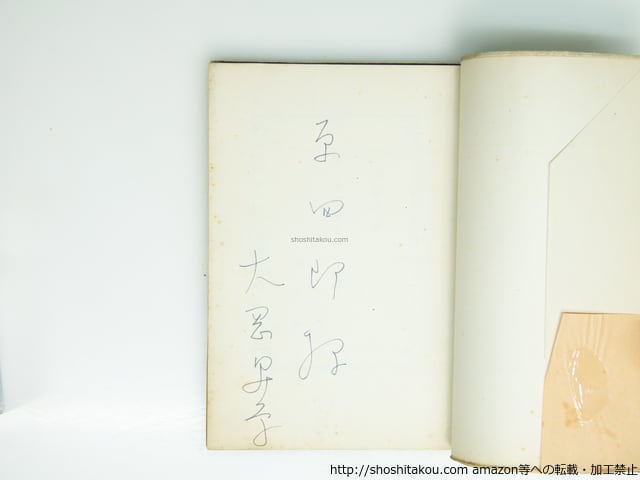 原四郎様
大岡昇平
shoshitakou.com
http://shoshitakou.com amazon等への転載・加工禁止